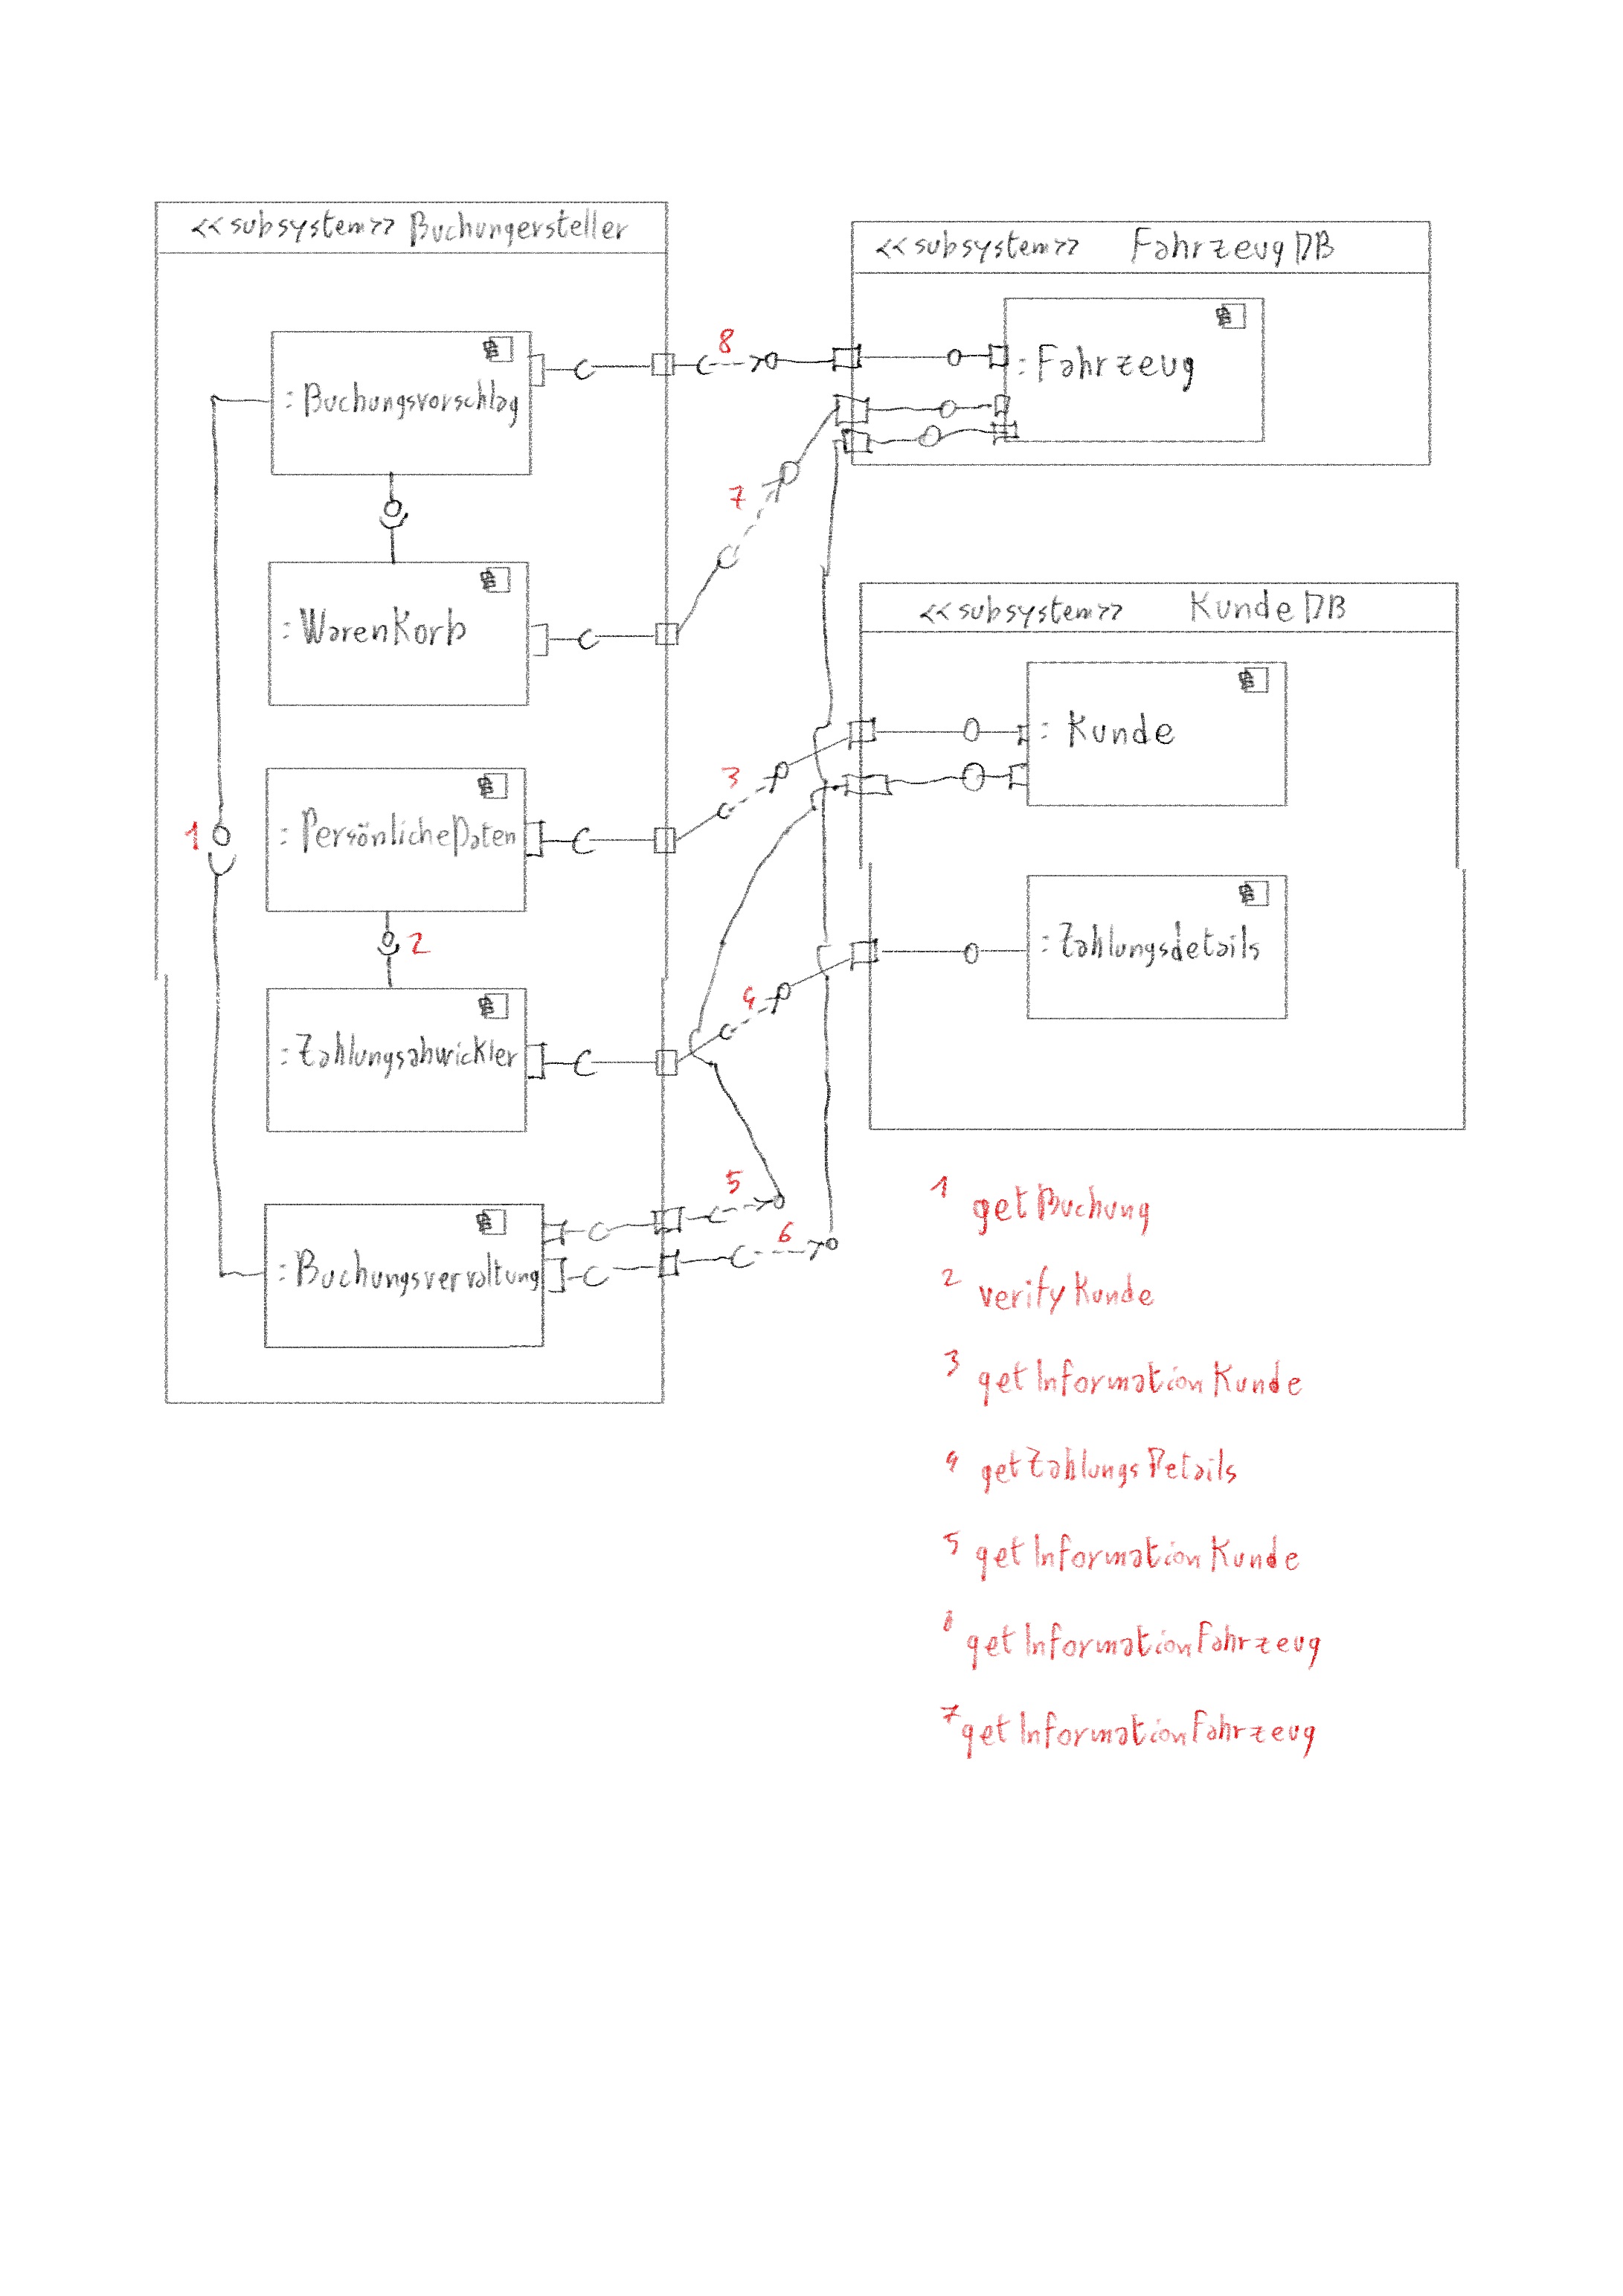 <<subsystem>> Buchungersteller
: Buchungsvorschlag
: WarenKorb
: PersönlicheDaten
: Zahlungsabwickler
: Buchungsverwaltung
<<subsystem>> FahrzeugDB
: Fahrzeug
<<subsystem>> KundeDB
: Kunde
: Zahlungsdetails
8
7
3
1
2
4
5
6
1 getBuchung
2 verifyKunde
3 getInformationKunde
4 getZahlungsDetails
5 getInformationKunde
getInformationFahrzeug
7 getInformationFahrzeug